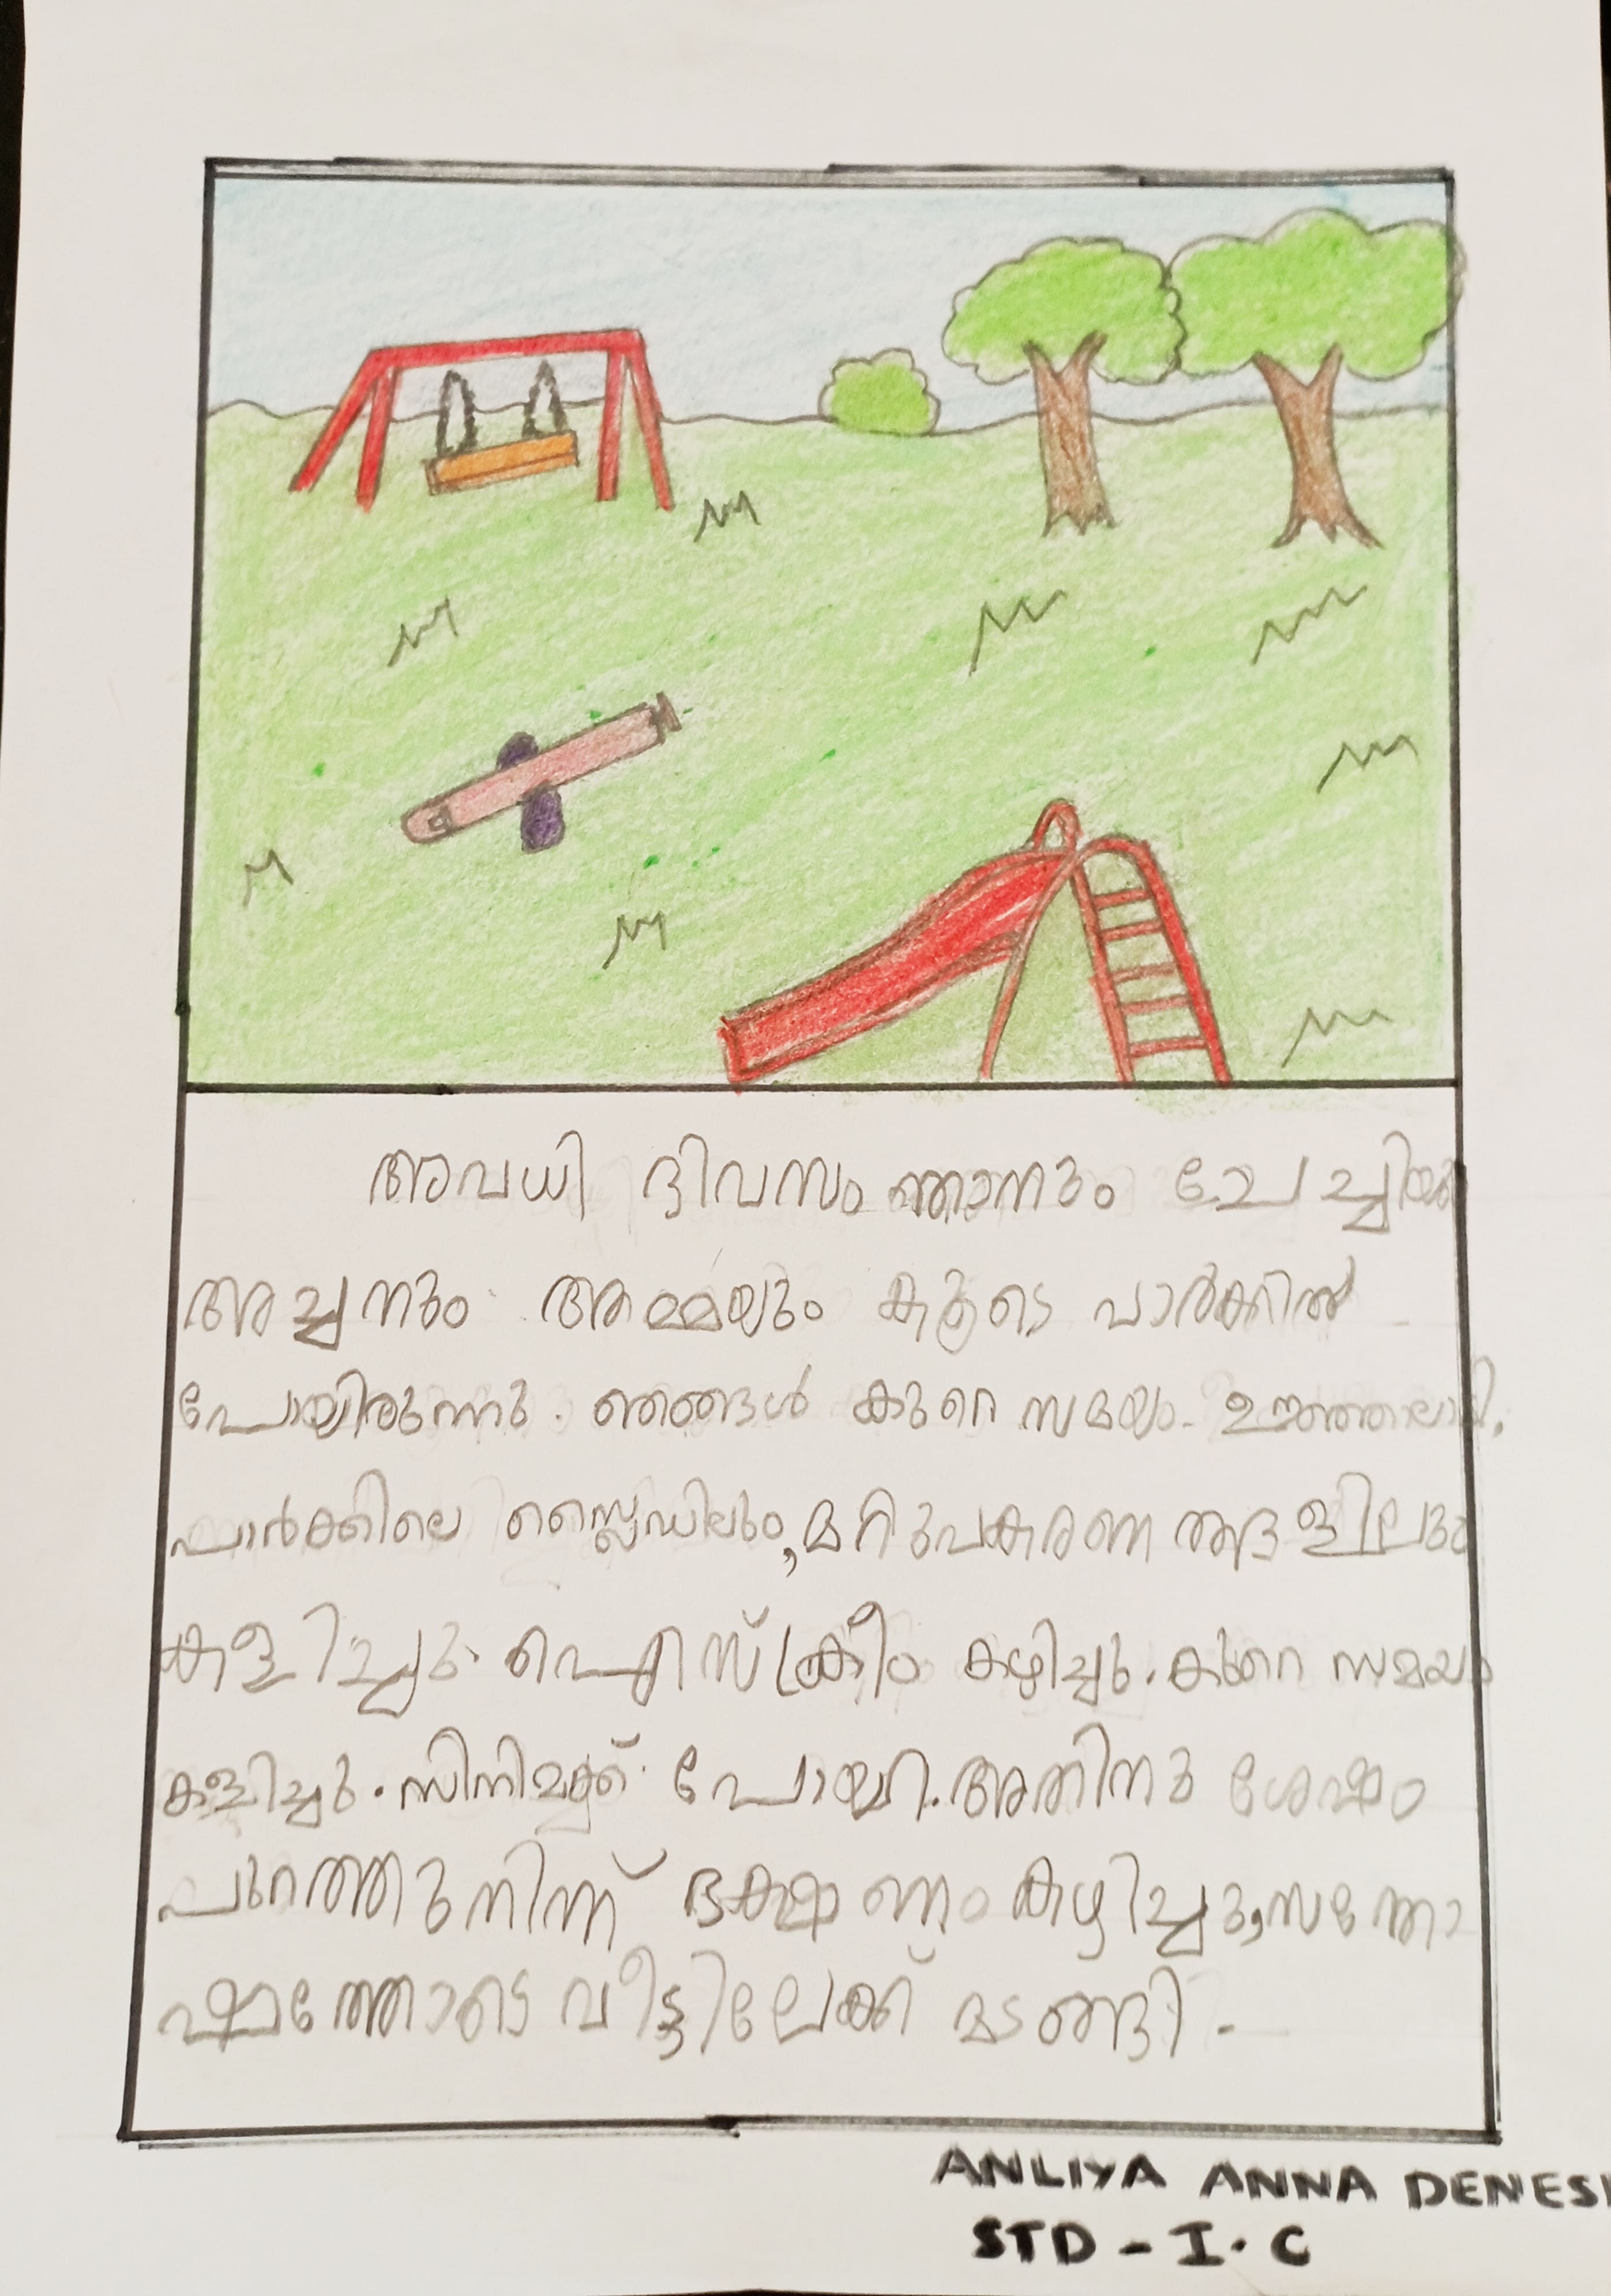 അവധി ദിവസം ഞാനും ചേച്ചിയും
അച്ഛനും അമ്മയും കൂടെ പാർക്കിൽ
പോയിരുന്നു. ഞങ്ങൾ കുറെ സമയം ഊഞ്ഞാലാടി.
പാർക്കിലെ സ്ലൈഡിലും, മറ്റുപകരണങ്ങളിലും
കളിച്ചു. ഐസ്ക്രീം കഴിച്ചു. കുറെ സമയം
കളിച്ചു. സിനിമക്ക് പോയി. അതിനു ശേഷം
പുറത്തുനിന്ന് ഭക്ഷണം കഴിച്ചു, സന്തോ
ഷത്തോടെ വീട്ടിലേക്ക് മടങ്ങി.
ANLIYA ANNA
STD - I. C